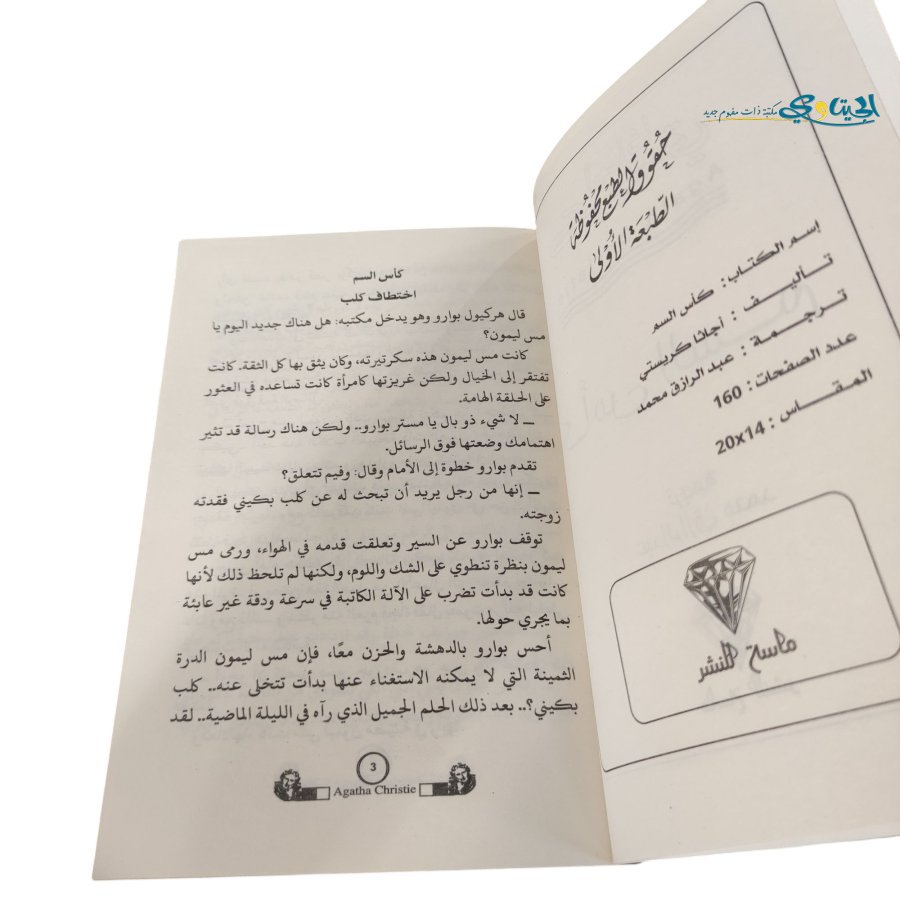 الجيتاوي مكتبة ذات مفهوم جديد
حُقُوقُ الطَّبع مَحْفُوظَة
الطَّبْعَةُ الأُوْلَى
إسم الكتاب: كأس السم
تأليف: أجاثا كريستي
ترجمة: عبد الرازق محمد
عدد الصفحات: 160
المقاس: 20x14
ماسة للنشر
كأس السم
اختطاف كلب
قال هركيول بوارو وهو يدخل مكتبه: هل هناك جديد اليوم يا
مس ليمون؟
كانت مس ليمون هذه سكرتيرته، وكان يثق بها كل الثقة. كانت
تفتقر إلى الخيال ولكن غريزتها كامرأة كانت تساعده في العثور
على الحلقة الهامة.
ــ لا شيء ذو بال يا مستر بوارو.. ولكن هناك رسالة قد تثير
اهتمامك وضعتها فوق الرسائل.
تقدم بوارو خطوة إلى الأمام وقال: وفيم تتعلق؟
ــ إنها من رجل يريد أن تبحث له عن كلب بكيني فقدته
زوجته.
توقف بوارو عن السير وتعلقت قدمه في الهواء، ورمى مس
ليمون بنظرة تنطوي على الشك واللوم، ولكنها لم تلحظ ذلك لأنها
كانت قد بدأت تضرب على الآلة الكاتبة في سرعة ودقة غير عابئة
بما يجري حولها.
أحس بوارو بالدهشة والحزن معًا، فإن مس ليمون الدرة
الثمينة التي لا يمكنه الاستغناء عنها بدأت تتخلى عنه.. كلب
بكيني؟.. بعد ذلك الحلم الجميل الذي رآه في الليلة الماضية.. لقد
3
Agatha Christie